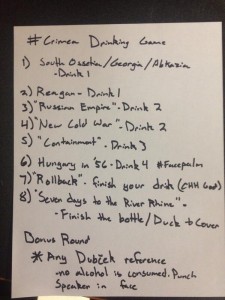 # Crimea Drinking Game
1) South Ossetia/Georgia/Abkazia
-Drink 1
2) Reagan - Drink 1
3) "Russian Empire" - Drink 2
4) "New Cold War" - Drink 2
5) "Containment" - Drink 3
6) Hungary in '56 - Drink 4 #Facepalm
7) "Rollback" - finish your drink (EHH God)
8) "Seven days to the River Rhine" -
- Finish the bottle/Duck + Cover
Bonus Round
* Any Dubček reference
-no alcohol is consumed. Punch
Speaker in face